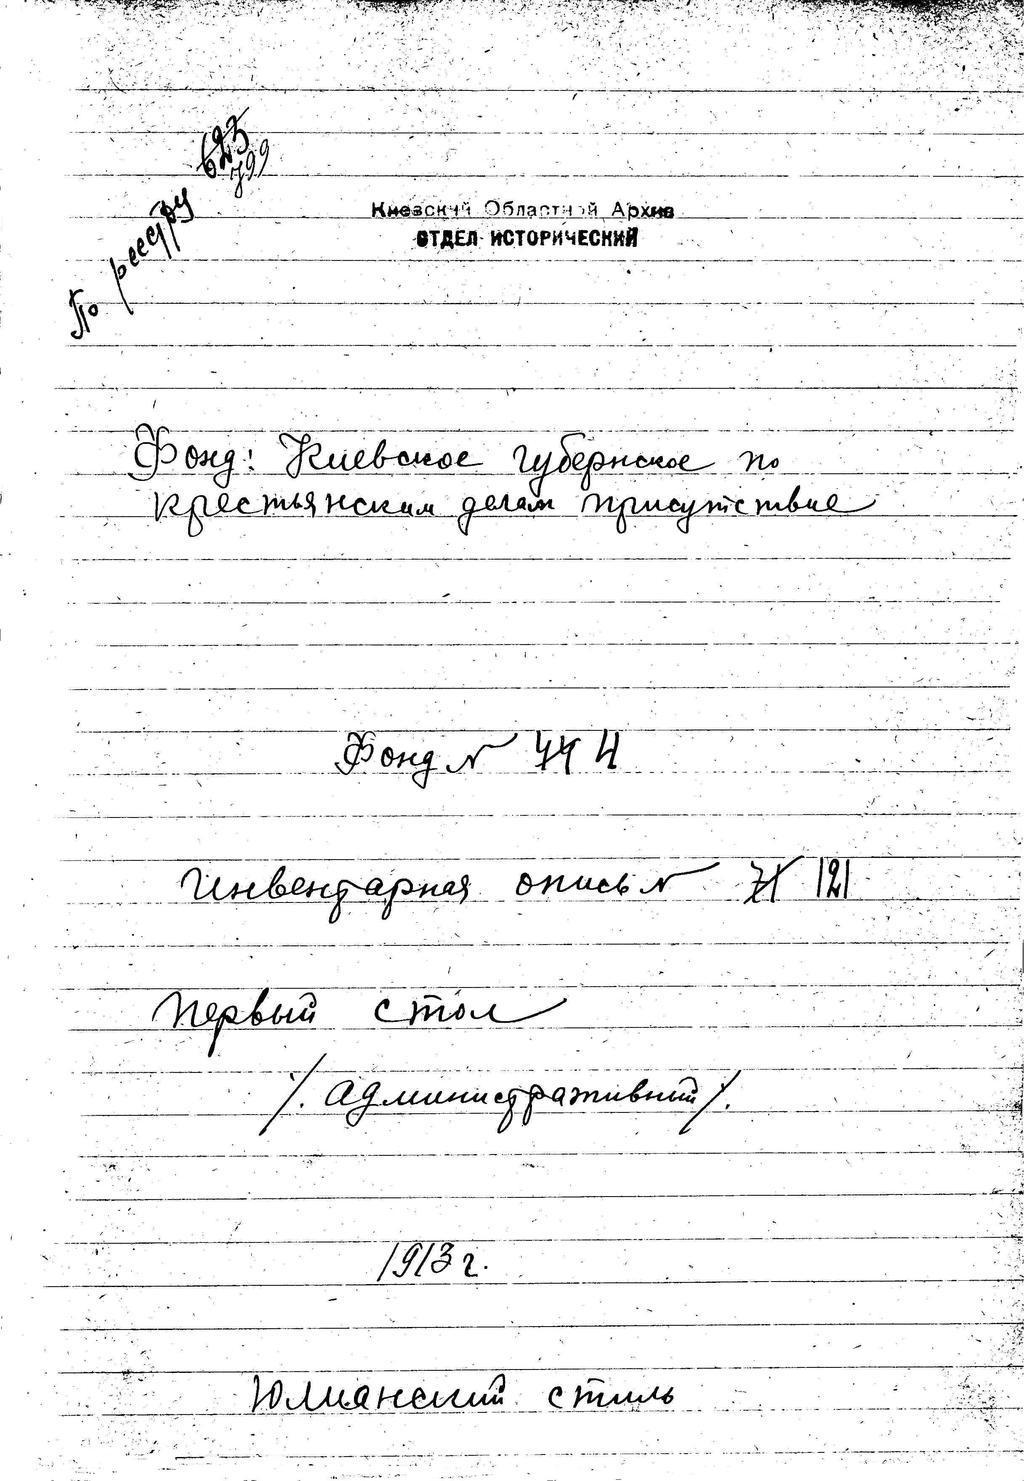 По реестру 623
799
Киевский Областной Архив
ОТДЕЛ ИСТОРИЧЕСКИЙ
Фонд: Киевское губернское по
крестьянским делам присутствие
Фонд N 44 Н
Инвентарная опись N 71 121
Первый стол
/. административный /.
1913 г.
Юлианский стиль